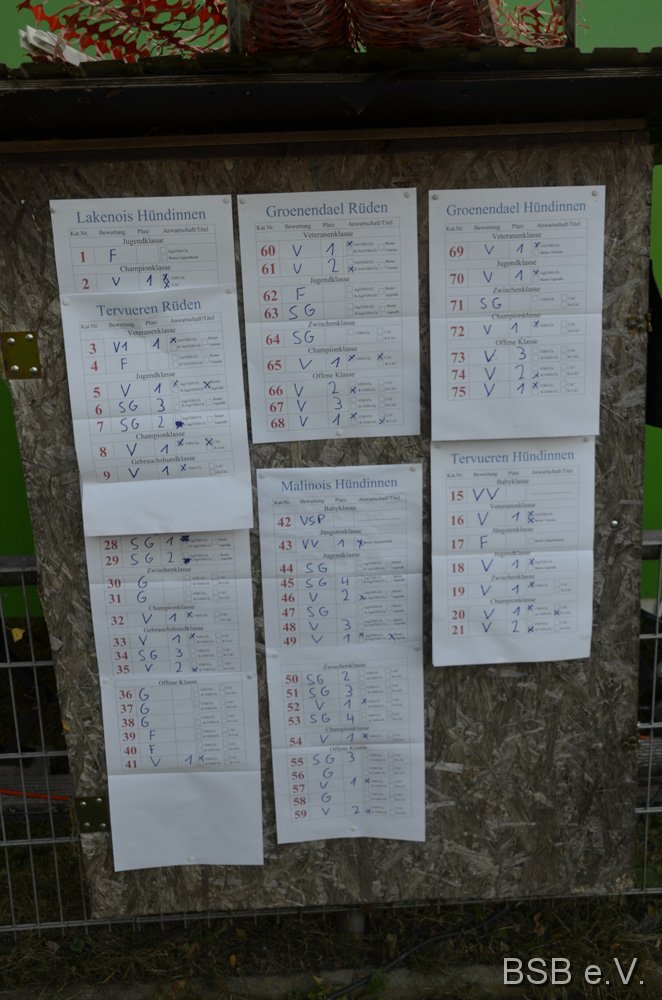 Lakenois Hündinnen
Kat.Nr. Bewertung Platz Anwartschaft/Titel
Jugendklasse
1 F
Championklasse
2 V 1
Tervueren Rüden
Kat.Nr. Bewertung Platz Anwartschaft/Titel
Veteranenklasse
3 V1 1
4 F
Jugendklasse
5 V 1
6 SG 3
7 SG 2
Championklasse
8 V 1
Gebrauchshundklasse
9 V 1
28 SG 1
29 SG 2
Zwischenklasse
30 G
31 G
Championklasse
32 V 1
Gebrauchshundklasse
33 V 1
34 SG 3
35 V 2
Offene Klasse
36 G
37 G
38 G
39 F
40 F
41 V 1
Groenendael Rüden
Kat.Nr. Bewertung Platz Anwartschaft/Titel
Veteranenklasse
60 V 1
61 V 2
Jugendklasse
62 F
63 SG
Zwischenklasse
64 SG
Championklasse
65 V 1
Offene Klasse
66 V 2
67 V 3
68 V 1
Malinois Hündinnen
Kat.Nr. Bewertung Platz Anwartschaft/Titel
Babyklasse
42 VSP
Jüngstenklasse
43 VV 1
Jugendklasse
44 SG
45 SG 4
46 V 2
47 SG
48 V 3
49 V 1
Zwischenklasse
50 SG 2
51 SG 3
52 V 1
53 SG 4
Championklasse
54 V 1
Offene Klasse
55 SG 3
56 G
57 V 1
58 G
59 V 2
Groenendael Hündinnen
Kat.Nr. Bewertung Platz Anwartschaft/Titel
Veteranenklasse
69 V 1
Jugendklasse
70 V 1
Zwischenklasse
71 SG
Championklasse
72 V 1
Offene Klasse
73 V 3
74 V 2
75 V 1
Tervueren Hündinnen
Kat.Nr. Bewertung Platz Anwartschaft/Titel
Babyklasse
15 VV
Veteranenklasse
16 V 1
Jüngstenklasse
17 F
Jugendklasse
18 V 1
Zwischenklasse
19 V 1
Championklasse
20 V 1
21 V 2
BSB e.V.